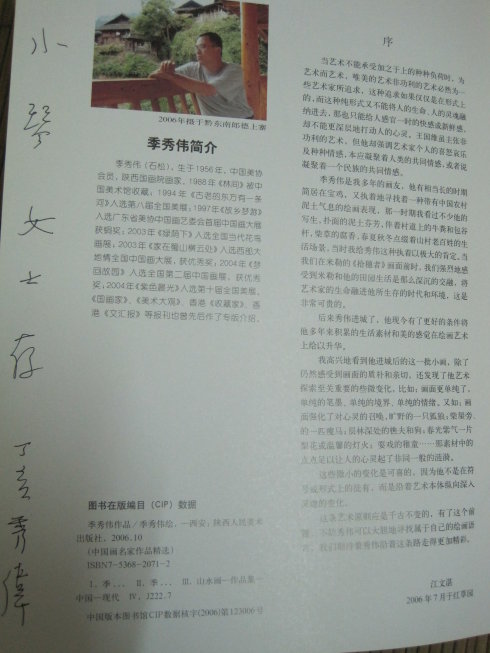 小琴女士存
丁亥 秀伟
2006年摄于黔东南郎德上寨
季秀伟简介
季秀伟（石松），生于1956年，中国美协
会员，陕西国画院画家，1988年《林间》被中
国美术馆收藏；1994年《古老的东方有一条
河》入选第八届全国美展；1997年《故乡梦游》
入选广东省美协中国画艺委会首届中国画大展
获铜奖；2003年《绿荫下》入选全国当代花鸟
画展，2003年《家在蜀山横五处》入选西部大
地情全国中国画大展，获优秀奖，2004年《梦
回故园》入选全国第二届中国画展，获优秀
奖，2004年《紫色晨光》入选第十届全国美展，
《国画家》、《美术大观》、香港《收藏家》、香
港《文汇报》等报刊也曾先后作了专版介绍。
图书在版编目（CIP）数据
季秀伟作品／季秀伟绘．—西安：陕西人民美术
出版社，2006.10
（中国画名家作品精选）
ISBN7-5368-2071-2
Ⅰ.季… Ⅱ.季… Ⅲ.山水画—作品集—
中国—现代 Ⅳ.J222.7
中国版本图书馆CIP数据核字(2006)第123006号
序
当艺术不能承受加之于上的种种负荷时，为
艺术而艺术，唯美的艺术非功利的艺术必然为一
些艺术家所追求，这种追求如果仅仅是在形式上
的，而这种纯形式又不能将人的生命、人的灵魂融
纳进去，那也只能给人感官一时的快感或新鲜感，
却不能更深层地打动人的心灵。王国维虽主张非
功利的艺术，但他却强调艺术家个人的喜怒哀乐
及种种情感，本应凝聚着人类的共同情感，或者说
凝聚着一个民族的共同情感。
季秀伟是我多年的画友，他有相当长的时期
简居在宝鸡，又执着地寻找着一种带有中国农村
泥土气息的绘画表现，那一时期我看过不少他的
写生，朴面的泥土芬芳，伴着村道上的牛粪和包谷
秆，柴草的腐香，春夏秋冬点缀着山村老百姓的生
活场景，当时我给秀伟这种执着以极大的肯定。当
我们在米勒的《拾穗者》画面前时，我们强烈地感
受到米勒和他的田园生活是那么深沉的交融，将
艺术家的生命融进他所生存的时代和环境，这是
非常可贵的。
后来秀伟进城了，他现今有了更好的条件将
他多年来积累的生活素材和美的感觉在绘画艺术
上给以升华。
我高兴地看到他进城后的这一批小画，除了
仍然感受到画面的质朴和亲切，还发现了他艺术
探索至关重要的些微变化，比如：画面更单纯了，
单纯的笔墨、单纯的境界、单纯的情绪。又如：画
面强化了对心灵的召唤，旷野的一只孤狼；柴扉旁
的一匹瘦马；层林深处的樵夫和狗；春光紫气一片
梨花或温馨的灯火；耍戏的稚童……那素材中的
点点足以让人的心灵起了非同一般的涟漪。
这些微小的变化是可喜的，因为他不是在符
号或形式上的徒有，而是沿着艺术本体纵向深入
灵魂的变化。
这条艺术原则应是千古不变的，有了这个前
提，下的秀伟可以大胆地寻找属于自己的绘画语
言，我们期待着秀伟沿着这条路走得更加精彩。
江文湛
2006年7月于红草园